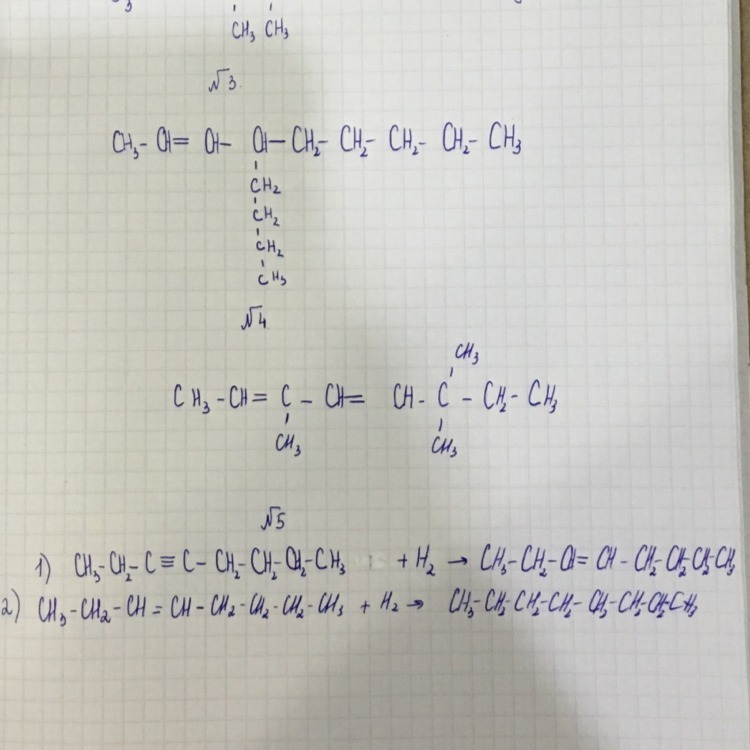 3
CH₃ CH₃
№3.
CH₃- CH= CH- CH- CH₂- CH₂- CH₂- CH₂- CH₃
CH₂
CH₂
CH₂
CH₃
№4
CH₃
CH₃ - CH = C - CH = CH - C - CH₂ - CH₃
CH₃ CH₃
№5
1) CH₃- CH₂- C ≡ C - CH₂- CH₂- CH₂- CH₃ + H₂ → CH₃- CH₂- CH = CH - CH₂- CH₂ CH₂ CH₃
2) CH₃ - CH₂ - CH = CH - CH₂ - CH₂ - CH₂ - CH₃ + H₂ → CH₃- CH₂- CH₂- CH₂- CH₂- CH₂- CH₂- CH₃